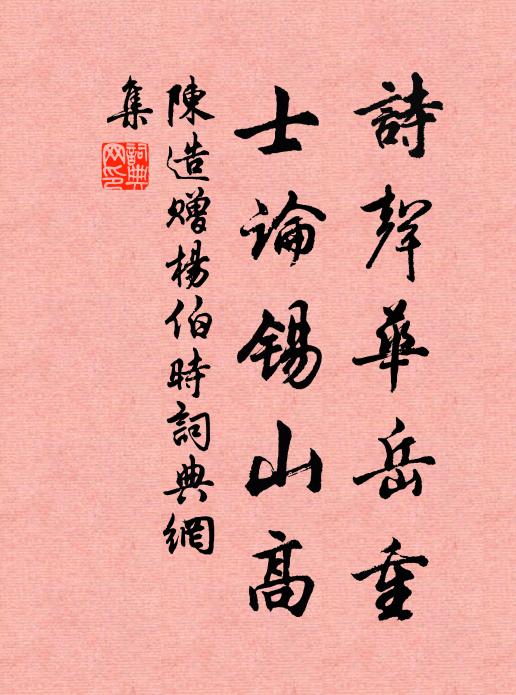 詩聲華岳重
士論錫山高
陳造贈楊伯時詞典網
集
詞典
网印